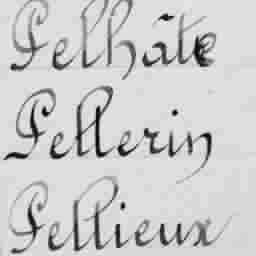 Pelhâte
Pellerin
Pellieux